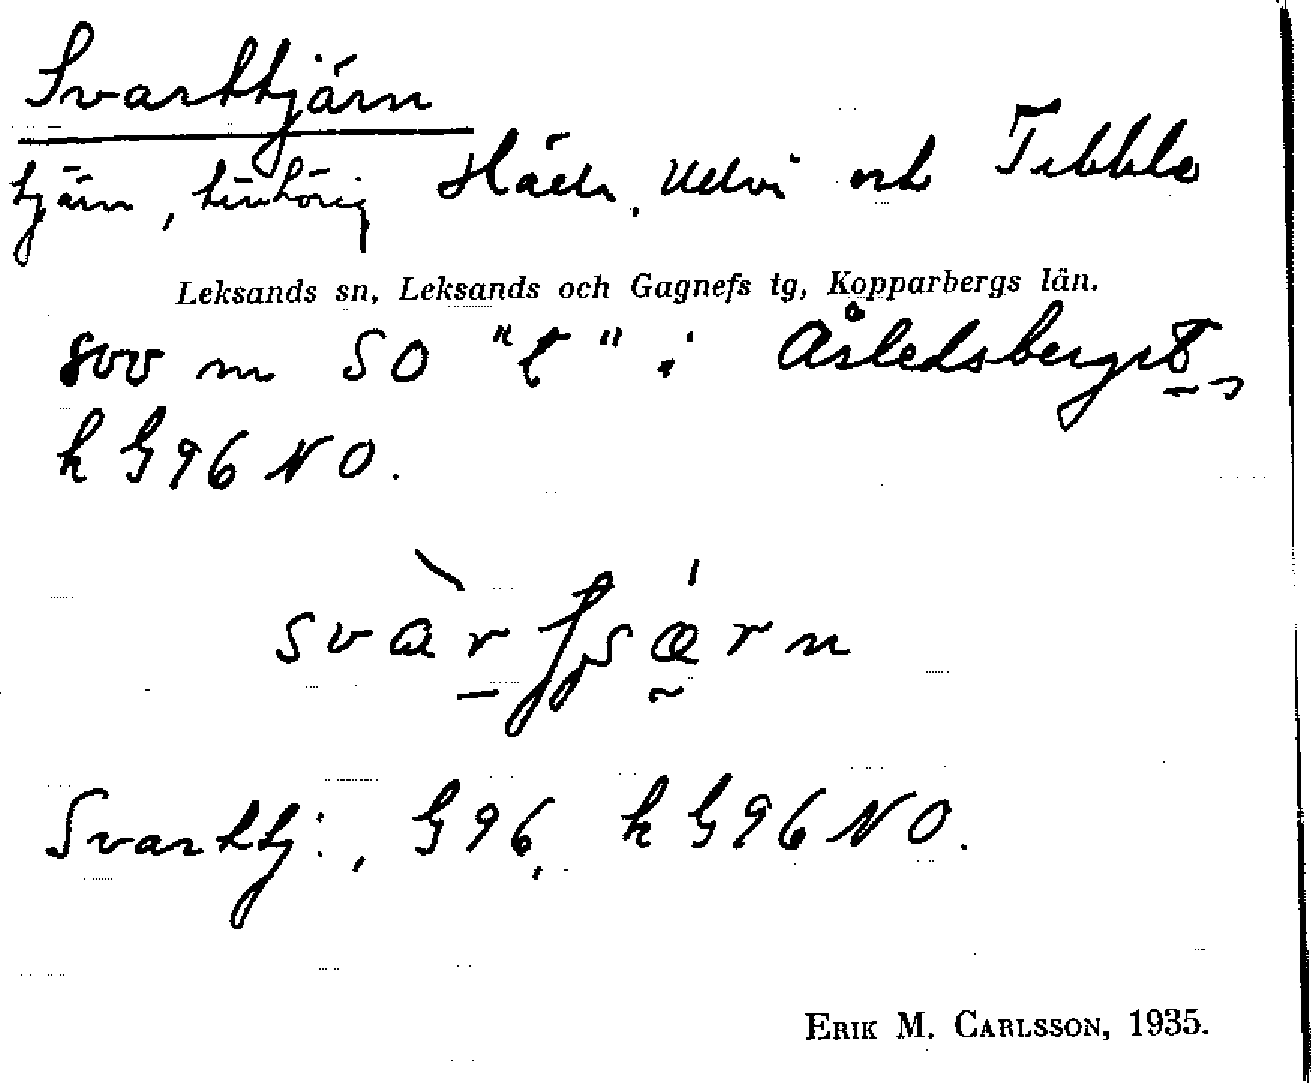 Svarttjärn
tjärn, tillhörig Häda, Ullvi och Tibble
Leksands sn, Leksands och Gagnefs tg, Kopparbergs län.
800 m SO "t" i Åsledsberget,
k G96NO.
Svarttj:, G96, k G96NO.
ERIK M. CARLSSON, 1935.